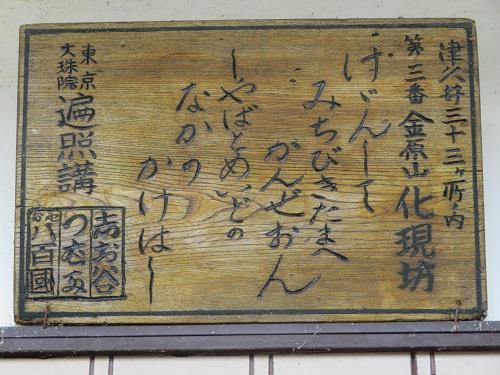 津久井三十三ヶ所ノ内
第三番 金原山 化現坊
げゞんして
みちびきたまへ
がんぜおん
しやばとめいどの
なかの
かけはし
東京
文珠院
遍照講
志お谷
八百國